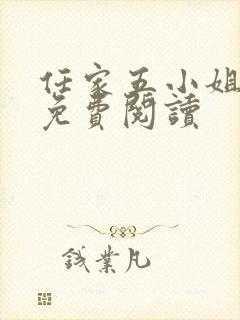 任家五小姐
免費閱讀
錢業凡